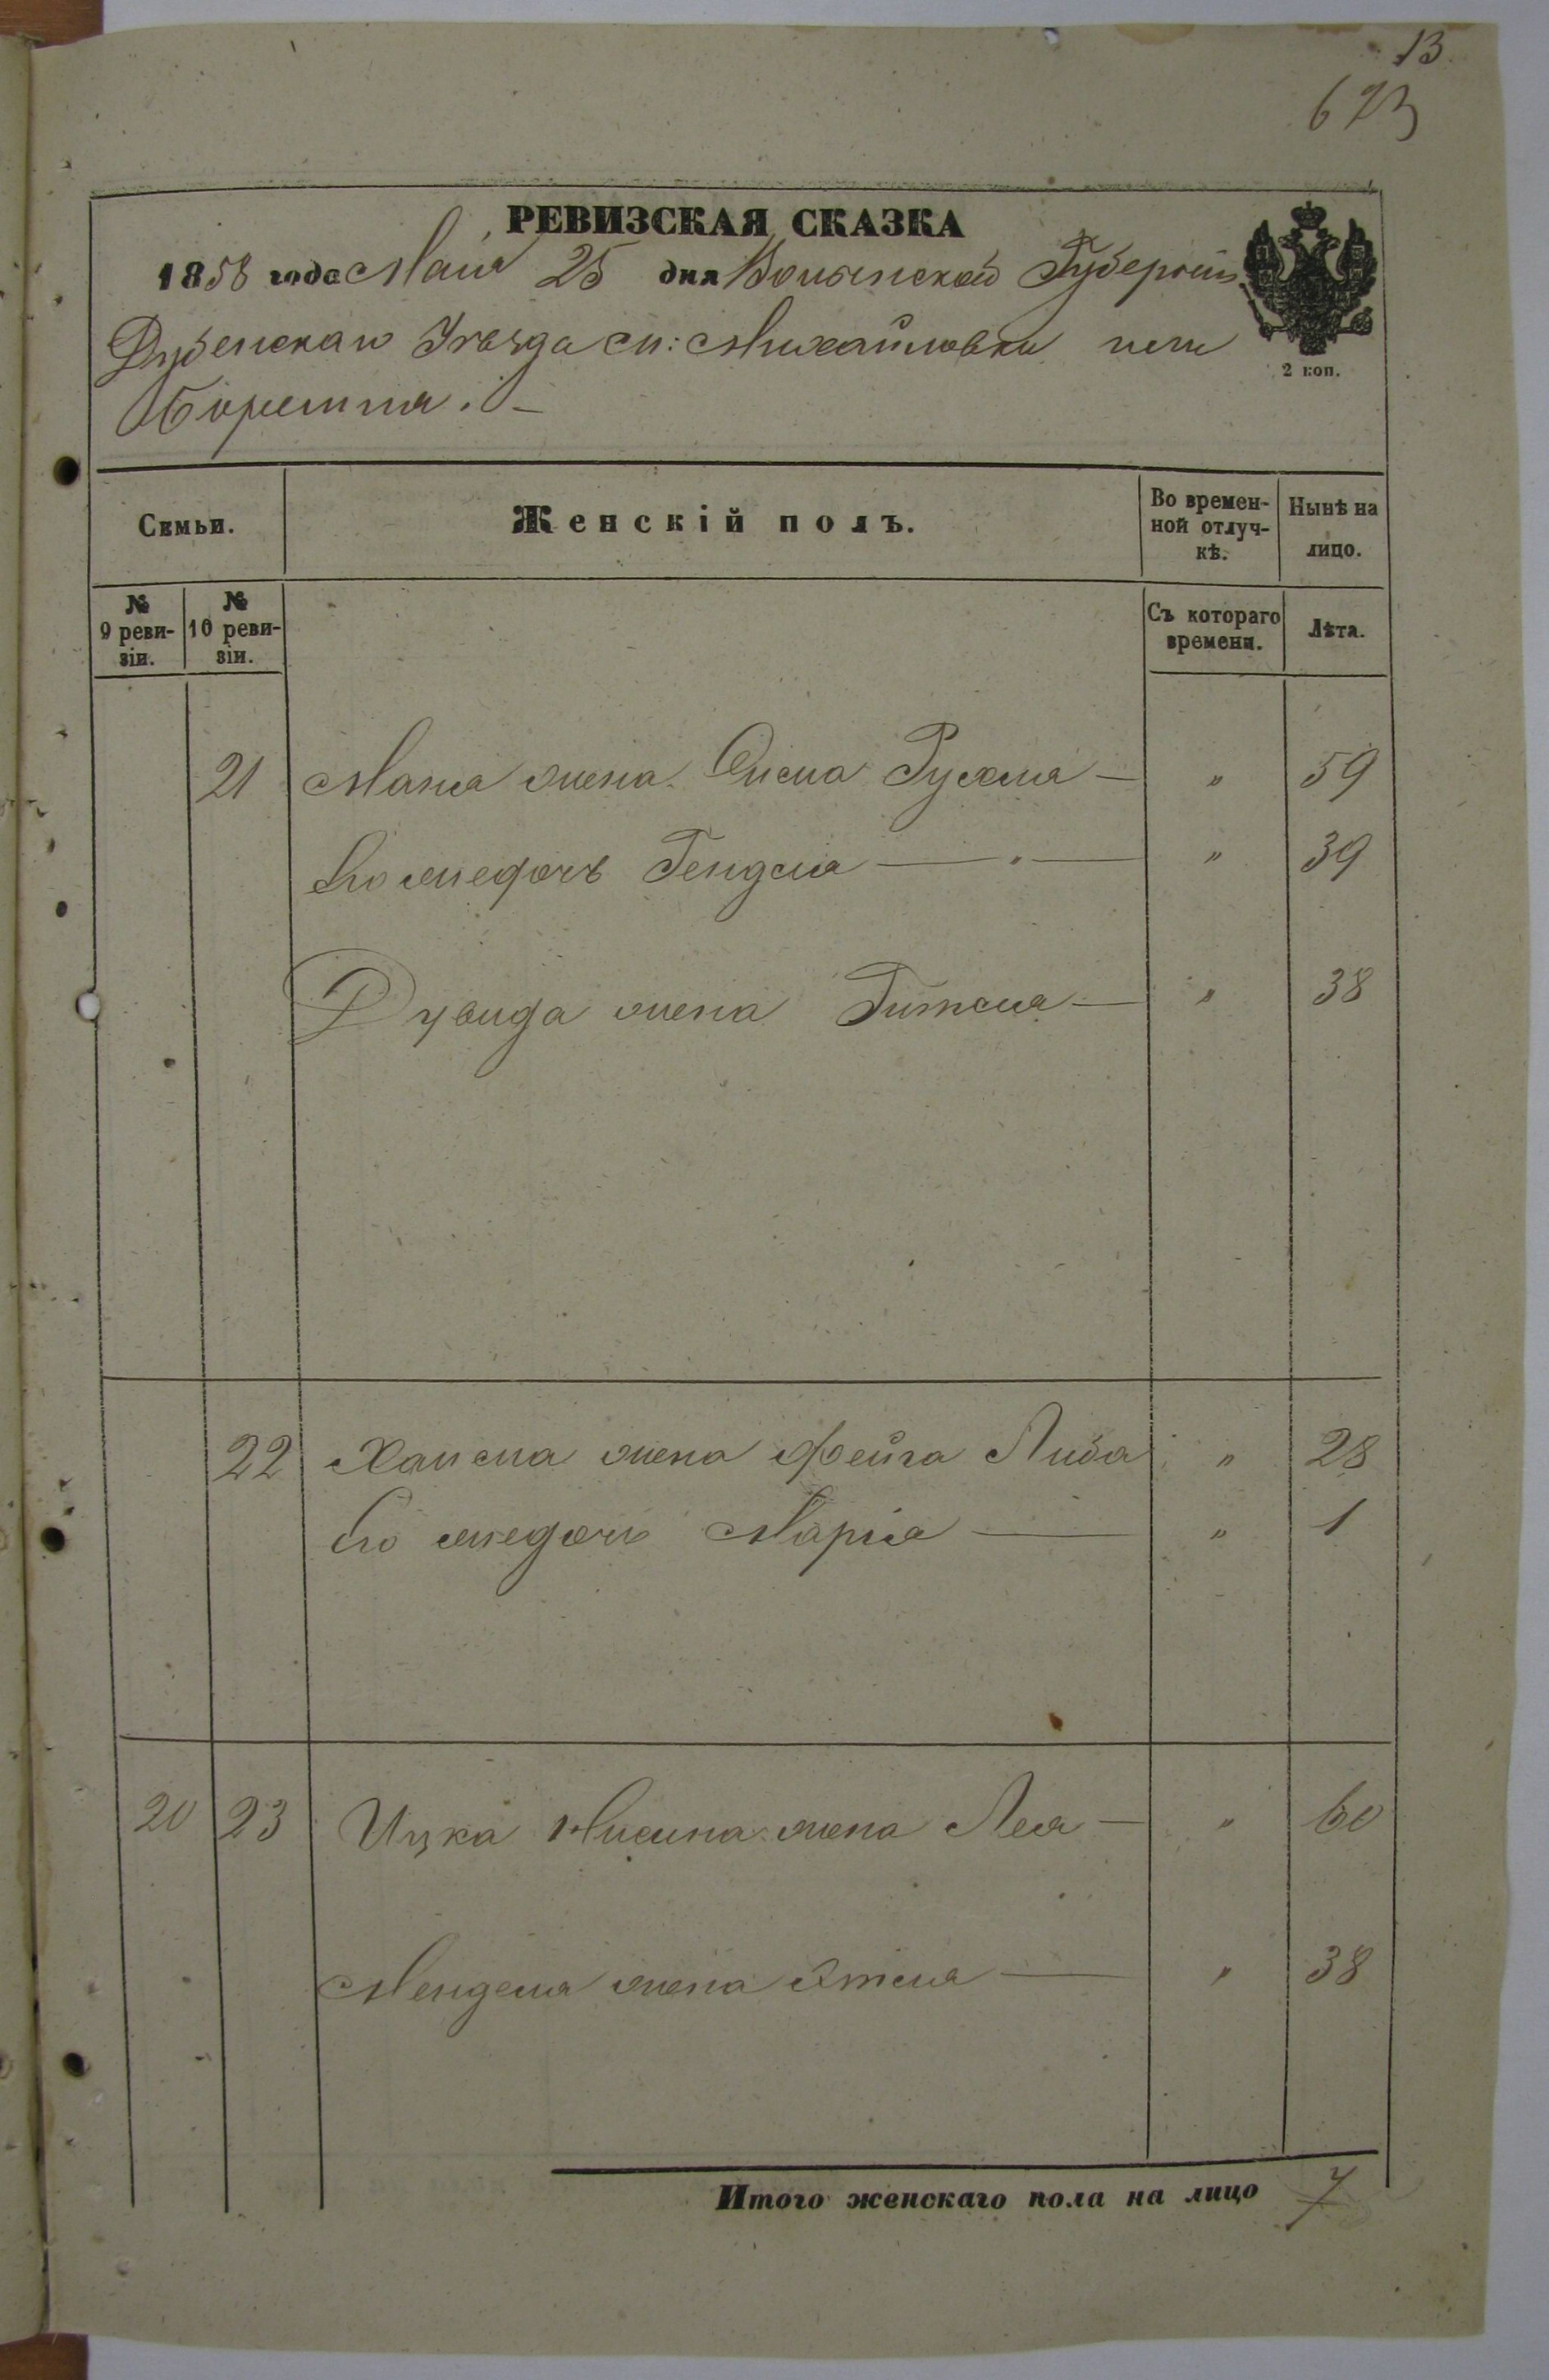 13.
673
РЕВИЗСКАЯ СКАЗКА
1858 года Маія 25 дня Волынской Губерніи
Дубенскаго Уѣзда см: Михайловки или
Боремля. –
2 коп.
Семьи.
Женскій полъ.
Во времен-
ной отлуч-
кѣ.
Нынѣ на
лицо.
№
9 реви-
зіи.
№
10 реви-
зіи.
Съ котораго
времени.
Лѣта.
21 жена Рухля — " 59
Его же дочь Гендля — " 39
Дувида жена Гитля — " 38
22 жена Фейга Либа " 28
Его же дочь Марія — " 1
20 23 Ицка жена Лея — " 60
Менделя жена Этля — " 38
Итого женскаго пола на лицо 7